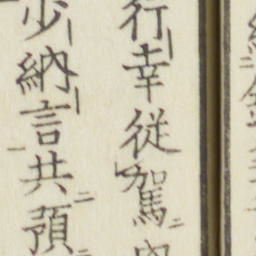 行幸従駕
少納言共預